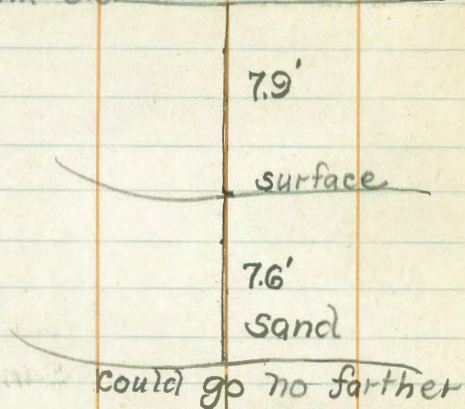 7.9'
surface
7.6'
sand
could go no farther